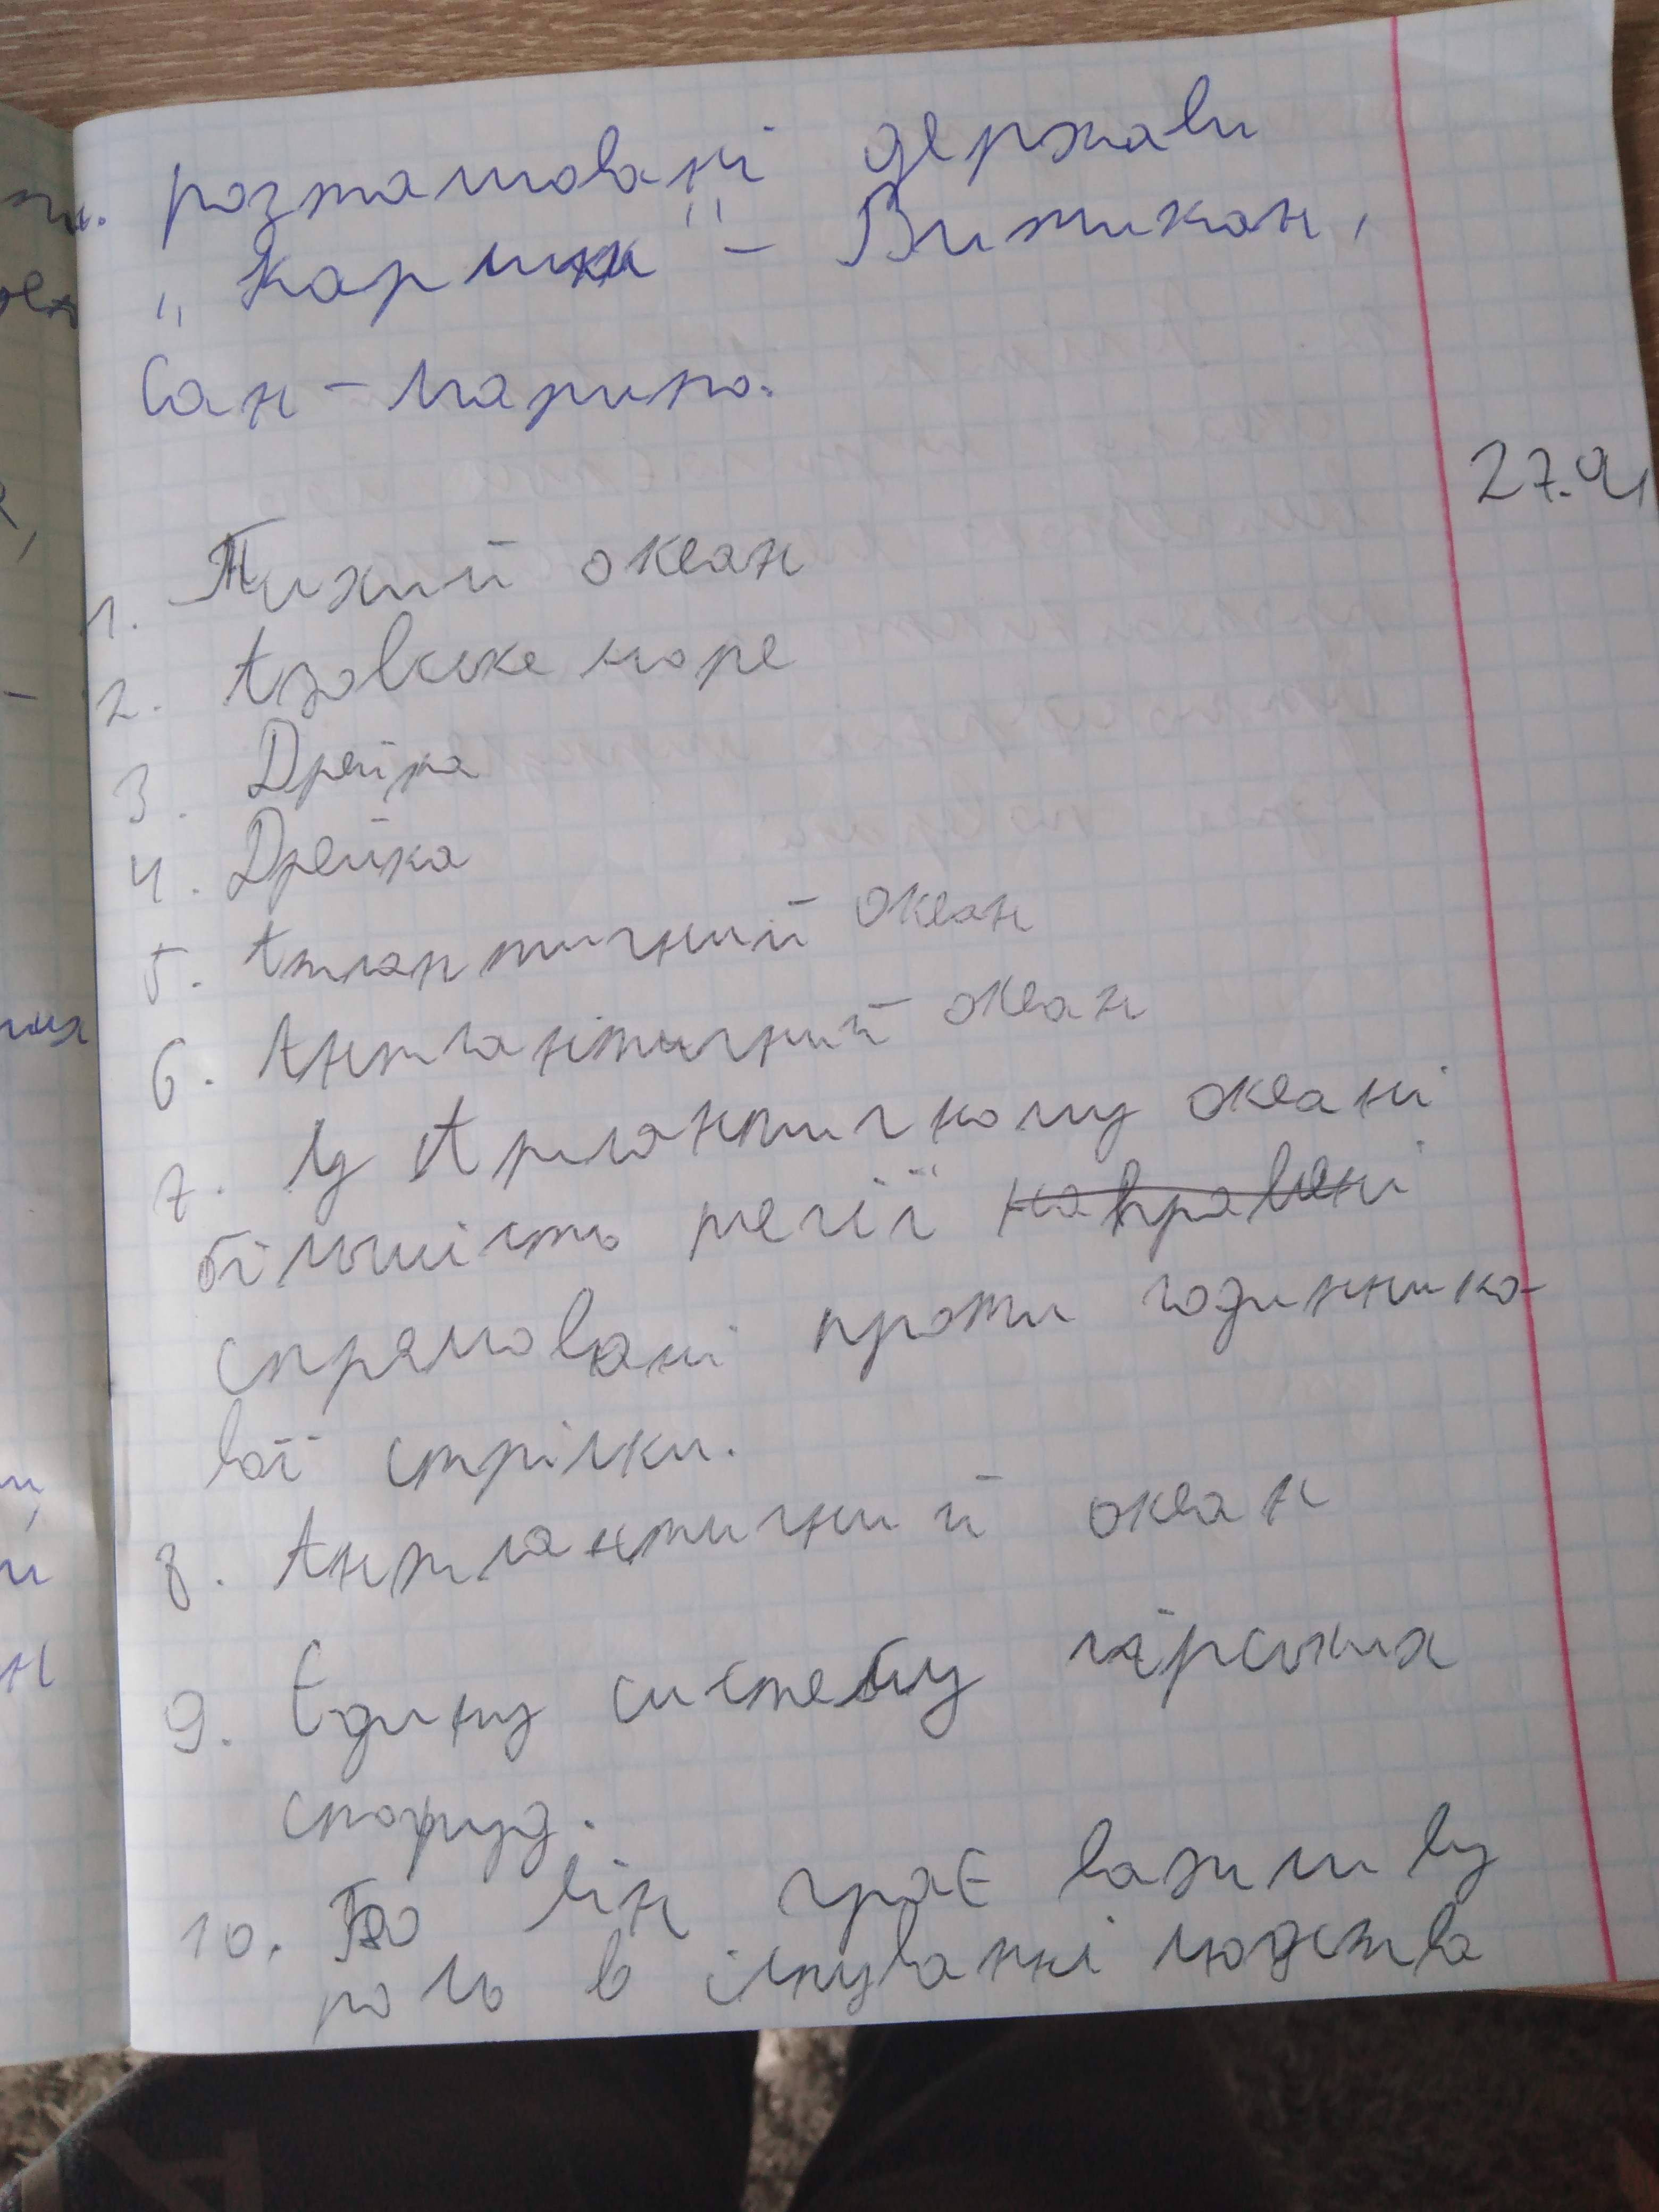 розташовані держави
„карлики" – Витикан,
Сан-Марино.
27.9
1. Тихий океан
2. Азовське море
3. Дрейка
4. Дрейка
5. Атлантичний океан
6. Антлантичний океан
7. У Атлантичному океані
більшість течії направлені
спрямовані проти годиннико-
вої стрілки.
8. Антлантичний океан
9. Єдину систему гірських
споруд.
10. Бо він грає важливу
роль в існуванні людства